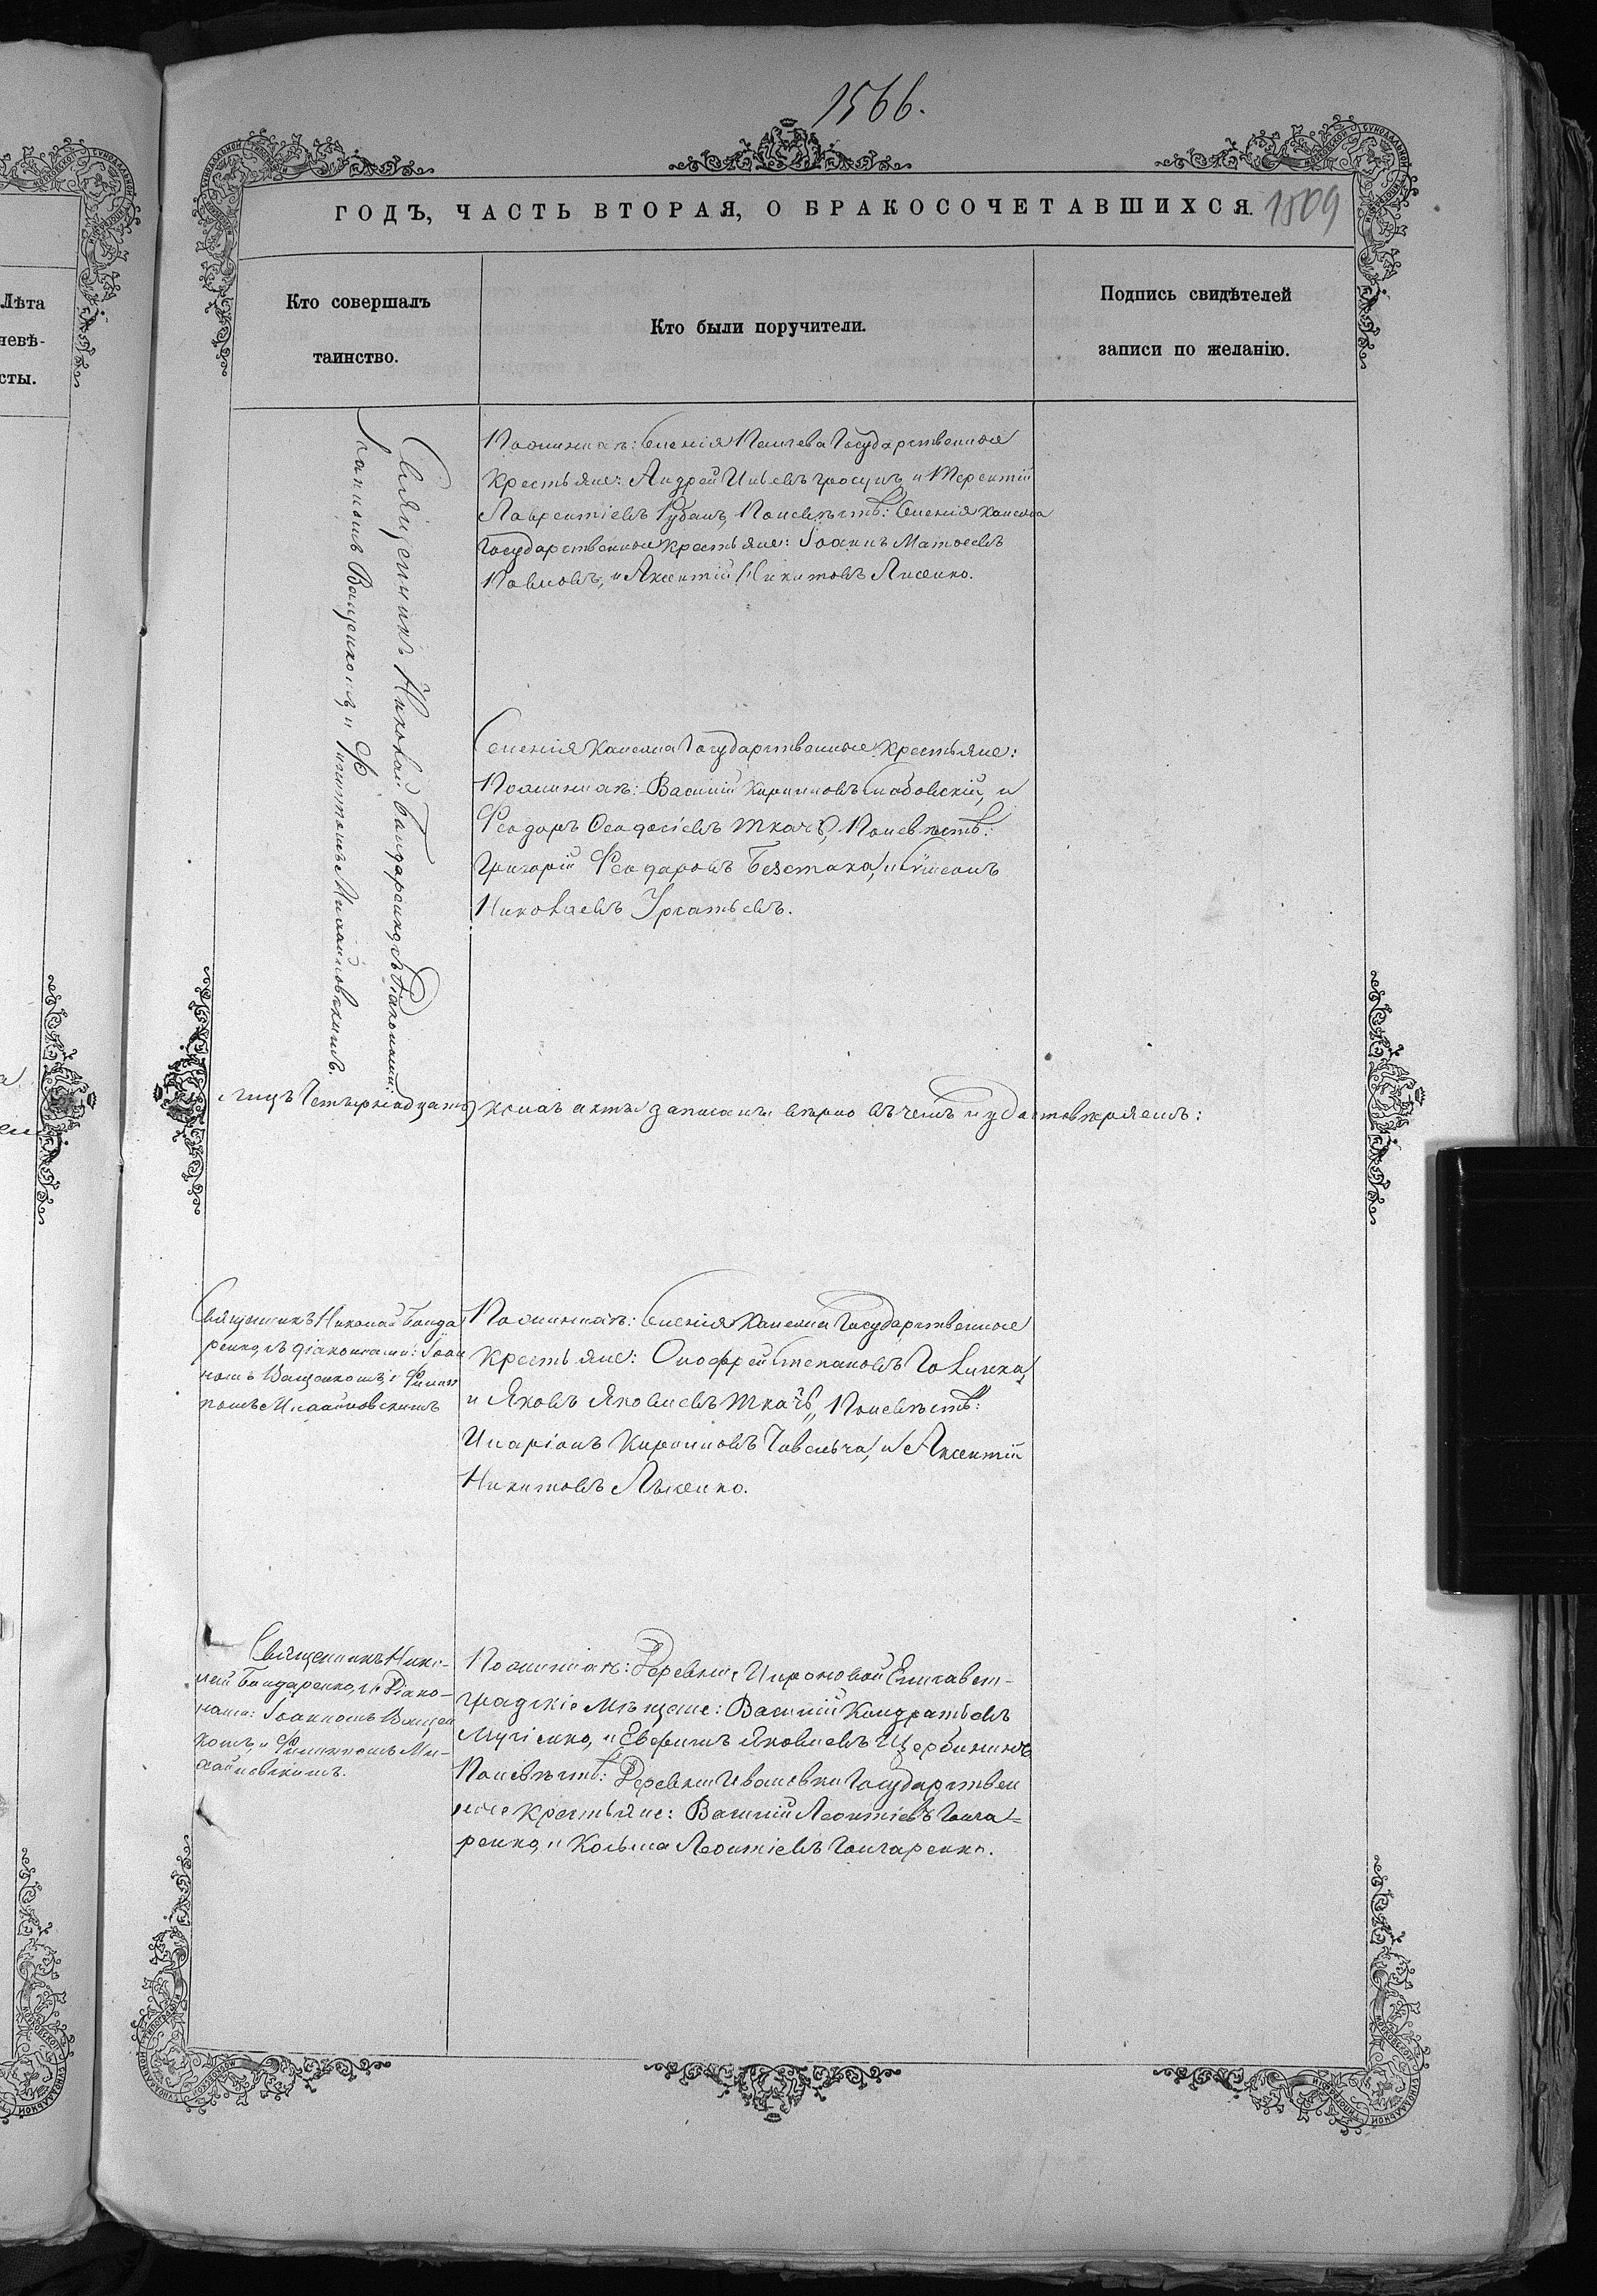 1566.
ГОДЪ, ЧАСТЬ ВТОРАЯ, О БРАКОСОЧЕТАВШИХСЯ.
1509
Лѣта
невѣ-
сты.
Кто совершалъ
таинство.
Кто были поручители.
Подпись свидѣтелей
записи по желанію.
Священникъ Николай Бандаренко съ Діаконами:
Ващенкомъ и Михайловскимъ.
По женихѣ: Селенія Государственные
крестьяне: Андрей и Терентій
Лаврентіевъ Рубанъ, По невѣстѣ: Селенія
Государственные крестьяне: Іоаннъ Матѳеевъ
Павловъ, и Аксентій Никитовъ Лисенко.
Селенія Государственные крестьяне:
По женихѣ: Василій Кириловъ и
Феодоръ Феодосіевъ Ткачъ, По невѣстѣ:
Григорій Феодоровъ и
Николаевъ Игнатьевъ.
акты записаны вѣрно въ чемъ и удостовѣряемъ:
Священникъ Николай Бонда
ренко, съ діаконами: Іоан
номъ Ващенкомъ, и Филип
помъ Михайловскимъ
По женихѣ: Селенія Государственные
Крестьяне: Онофрей Степановъ
и Яковъ Яковлевъ Ткачъ, По невѣстѣ:
Иларіонъ Кириловъ и Аксентій
Никитовъ Лысенко.
Священникъ Нико-
лай Бондаренко, съ Діако-
нами: Іоанномъ Ващен
комъ, и Филиппомъ Ми-
хайловскимъ.
По женихѣ: Деревни Елисавет-
градскіе Мѣщане: Василій Кондратьевъ
и Евфимъ Яковлевъ Щербининъ
По невѣстѣ: Деревни Ивановки Государствен
ные крестьяне: Василій Леонтіевъ Гонча=
ренко, и Косьма Леонтіевъ Гончаренко.